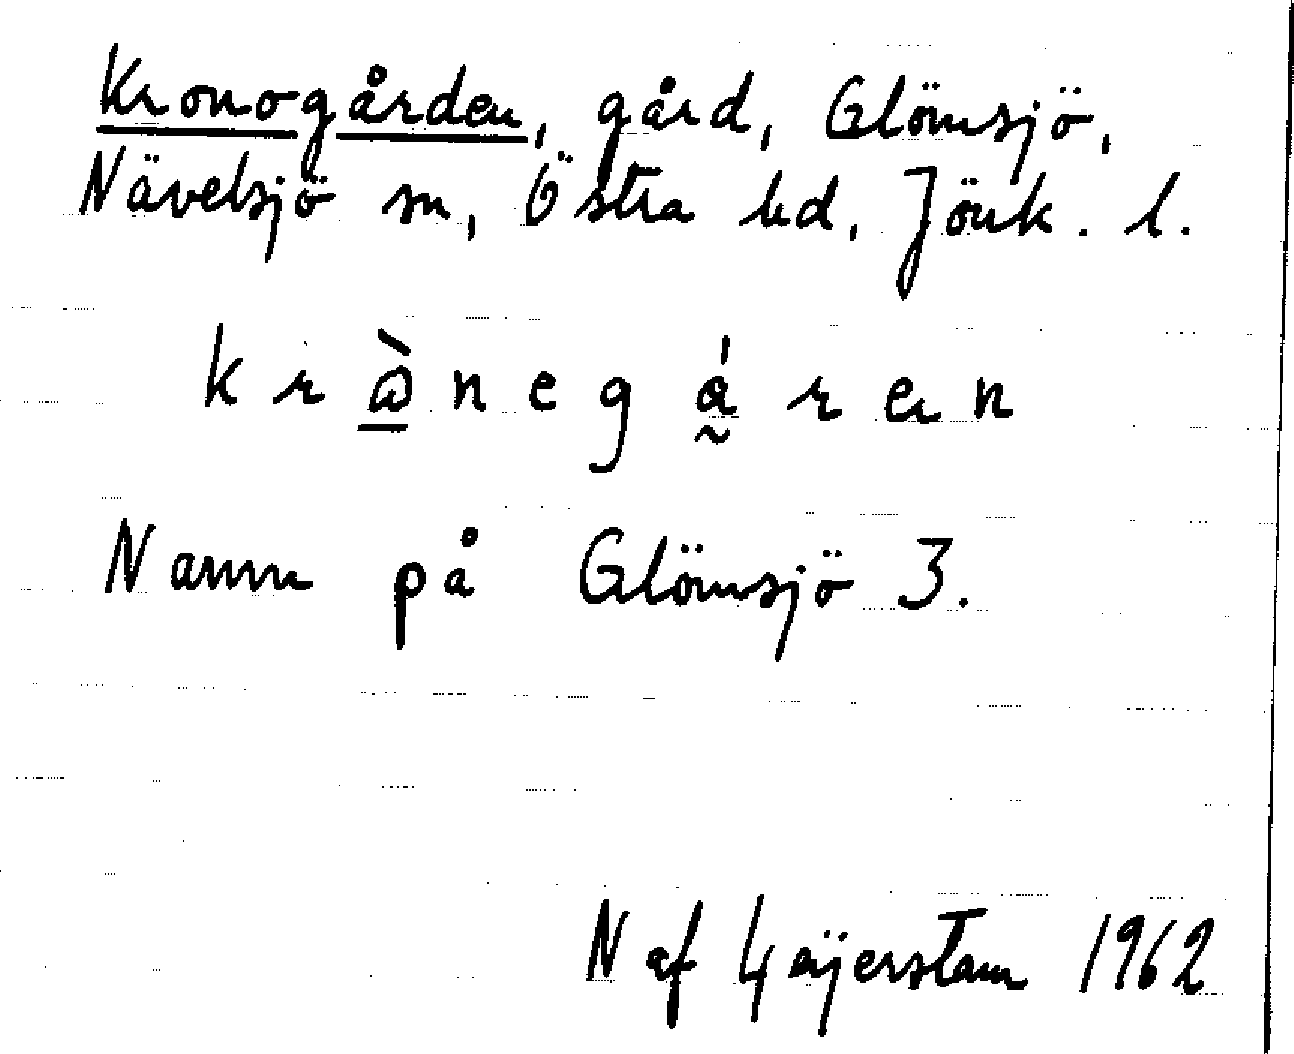 Kronogården, gård, Glömsjö,
Nävelsjö sn, Östra hd, Jönk. l.
Namn på Glömsjö 3.
N af Geijerstam 1962